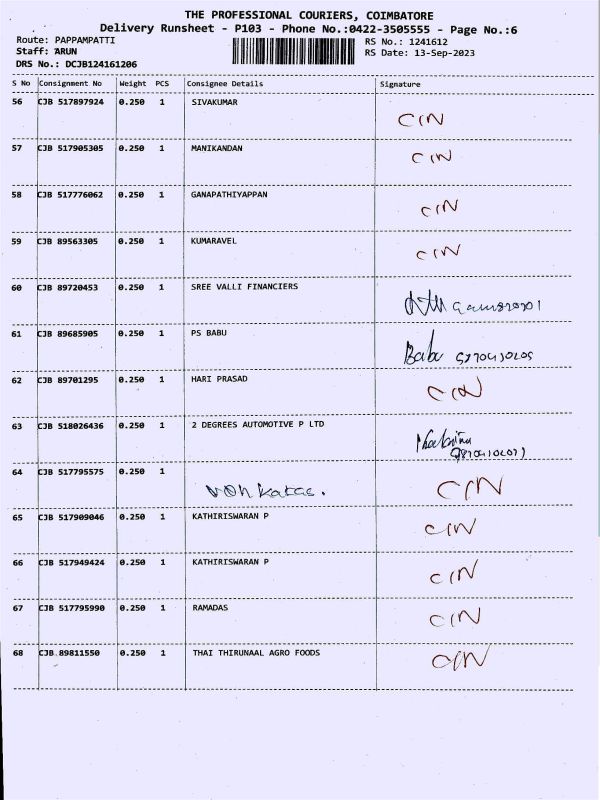 THE PROFESSIONAL COURIERS, COIMBATORE
Delivery Runsheet - P103 - Phone No.:0422-3505555 - Page No.:6
Route: PAPPAMPATTI RS No.: 1241612
Staff: ARUN RS Date: 13-Sep-2023
DRS No.: DCJB124161206
S No Consignment No Weight PCS Consignee Details Signature
56 CJB 517897924 0.250 1 SIVAKUMAR CIN
57 CJB 517905305 0.250 1 MANIKANDAN CIN
58 CJB 517776062 0.250 1 GANAPATHIYAPPAN CIN
59 CJB 89563305 0.250 1 KUMARAVEL CIN
60 CJB 89720453 0.250 1 SREE VALLI FINANCIERS
61 CJB 89685905 0.250 1 PS BABU Babu
62 CJB 89701295 0.250 1 HARI PRASAD CIN
63 CJB 518026436 0.250 1 2 DEGREES AUTOMOTIVE P LTD
64 CJB 517795575 0.250 1 CIN
65 CJB 517909046 0.250 1 KATHIRISWARAN P CIN
66 CJB 517949424 0.250 1 KATHIRISWARAN P CIN
67 CJB 517795990 0.250 1 RAMADAS CIN
68 CJB 89811550 0.250 1 THAI THIRUNAAL AGRO FOODS CIN